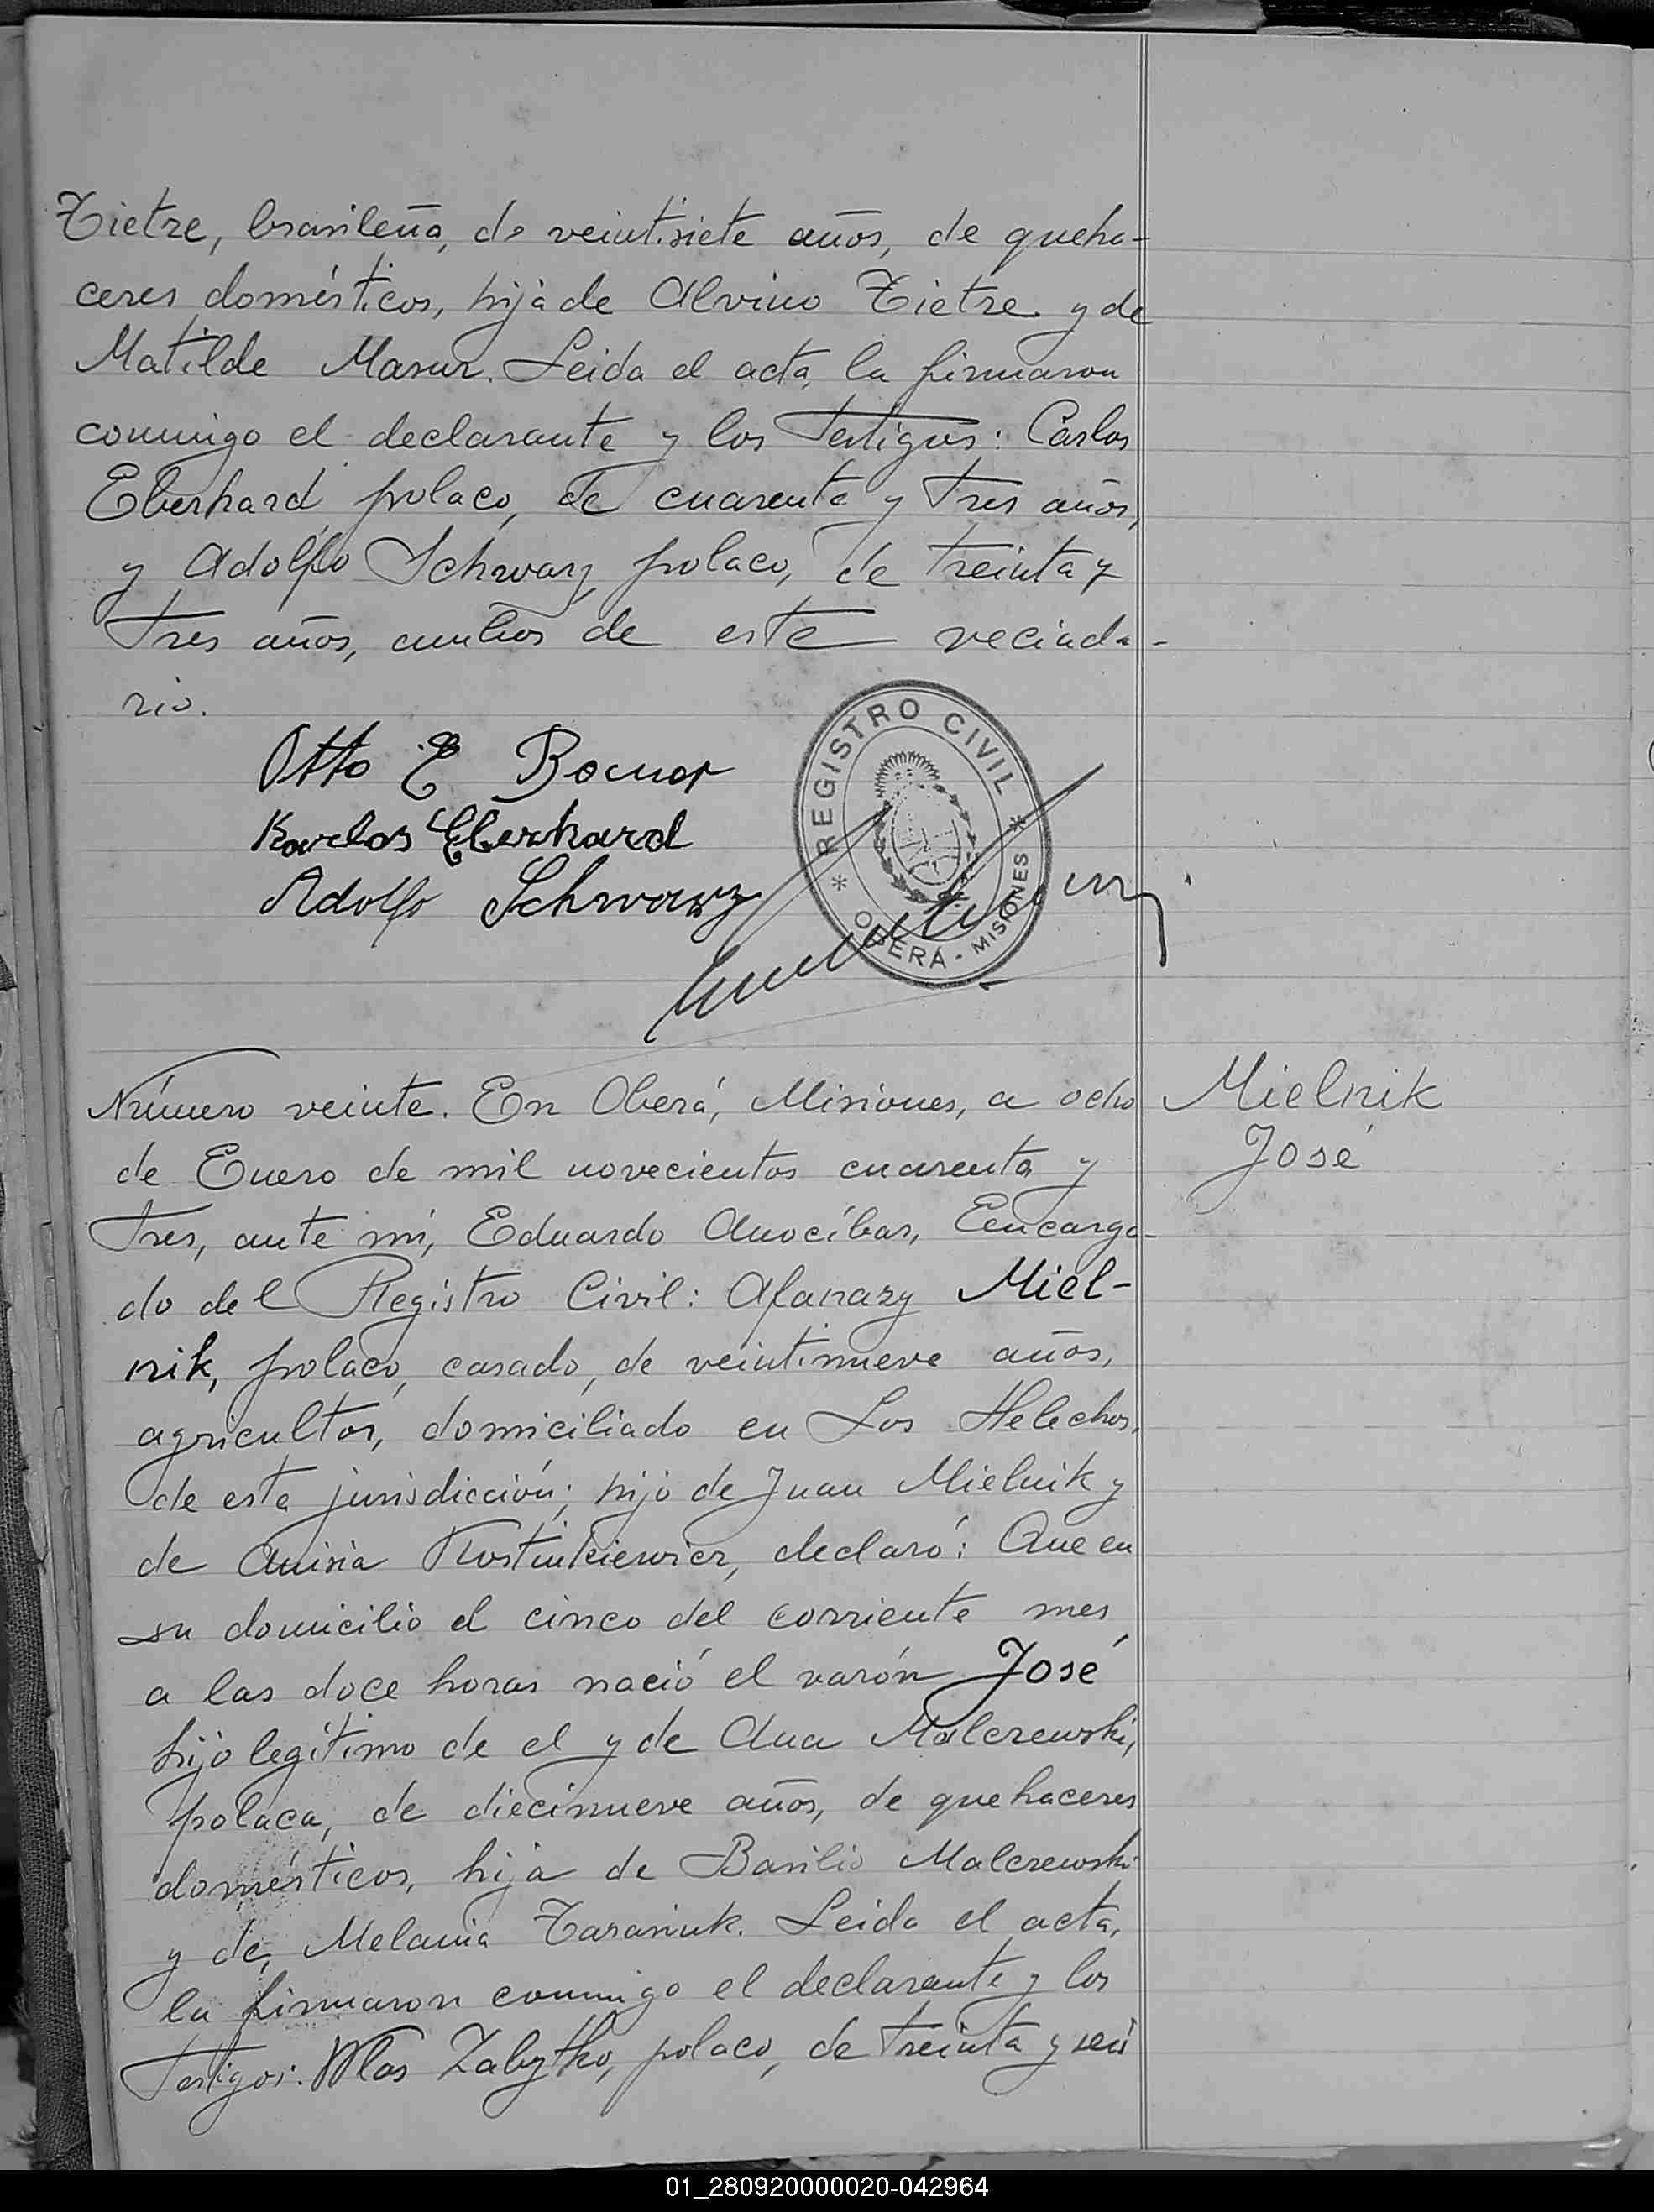 Tietze, brasileña, de veintisiete años, de queha-
ceres domésticos, hija de Alvino Tietze y de
Matilde Masur. Leida el acta, la firmaron
conmigo el declarante y los testigos: Carlos
Eberhard, polaco, de cuarenta y tres años,
y Adolfo Schwarz, polaco, de treinta y
tres años, ambos de este vecinda-
rio.
Otto E
Karlos Eberhard
Adolfo Schwarz
REGISTRO CIVIL
* OBERÁ - MISIONES *
Número veinte. En Oberá, Misiones, a ocho
de Enero de mil novecientos cuarenta y
tres, ante mí, Eduardo Anocíbar, Eencarga-
do del Registro Civil: Afanazy Miel-
nik, polaco, casado, de veintinueve años,
agricultor, domiciliado en Los Helechos,
de esta jurisdicción; hijo de Juan Mielnik y
de Anisia declaró: Que en
su domicilio el cinco del corriente mes
a las doce horas nació el varón José
hijo legítimo de el y de Ana Malczewski,
polaca, de diecinueve años, de quehaceres
domésticos, hija de Basilio Malczewski
y de, Melania Tarasiuk. Leida el acta,
la firmaron conmigo el declarante y los
testigos: Wlas Zabytko, polaco, de treinta y seis
Mielnik
José
01_280920000020-042964